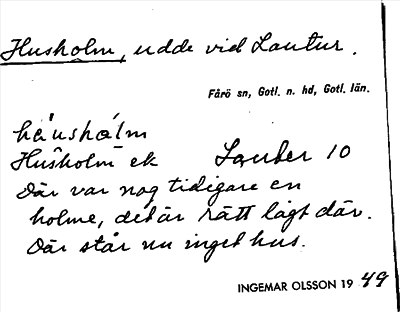 Husholm, udde vid Lautur.
Fårö sn, Gotl. n. hd, Gotl. län.
häushålm
Husholm ek Lauter 10
Där var nog tidigare en
holme, det är rätt lågt där.
Där står nu inget hus.
INGEMAR OLSSON 19 49